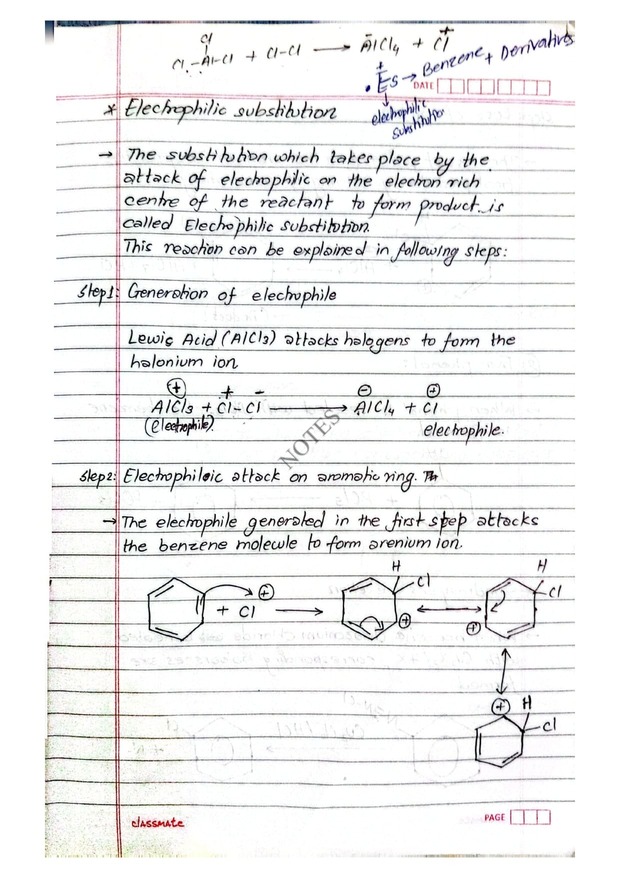 Cl
Cl-Al-Cl + Cl-Cl → ĀlCl4 + Cl+
+
Es → Benzene + Derivatives
DATE
electrophilic
substitution
* Electrophilic substitution
→ The substitution which takes place by the
attack of electrophilic on the electron rich
centre of the reactant to form product is
called Electrophilic substitution.
This reaction can be explained in following steps:
Step1: Generation of electrophile
Lewis Acid (AlCl3) attacks halogens to form the
halonium ion
⊕ + - ⊖ ⊕
AlCl3 + Cl-Cl → AlCl4 + Cl
(electrophile) electrophile.
NOTES
Step2: Electrophilic attack on aromatic ring.
→ The electrophile generated in the first step attacks
the benzene molecule to form arenium ion.
H H
⊕ Cl Cl
+ Cl → ⊕ ↔ ⊕
⊕ H
Cl
classmate
PAGE